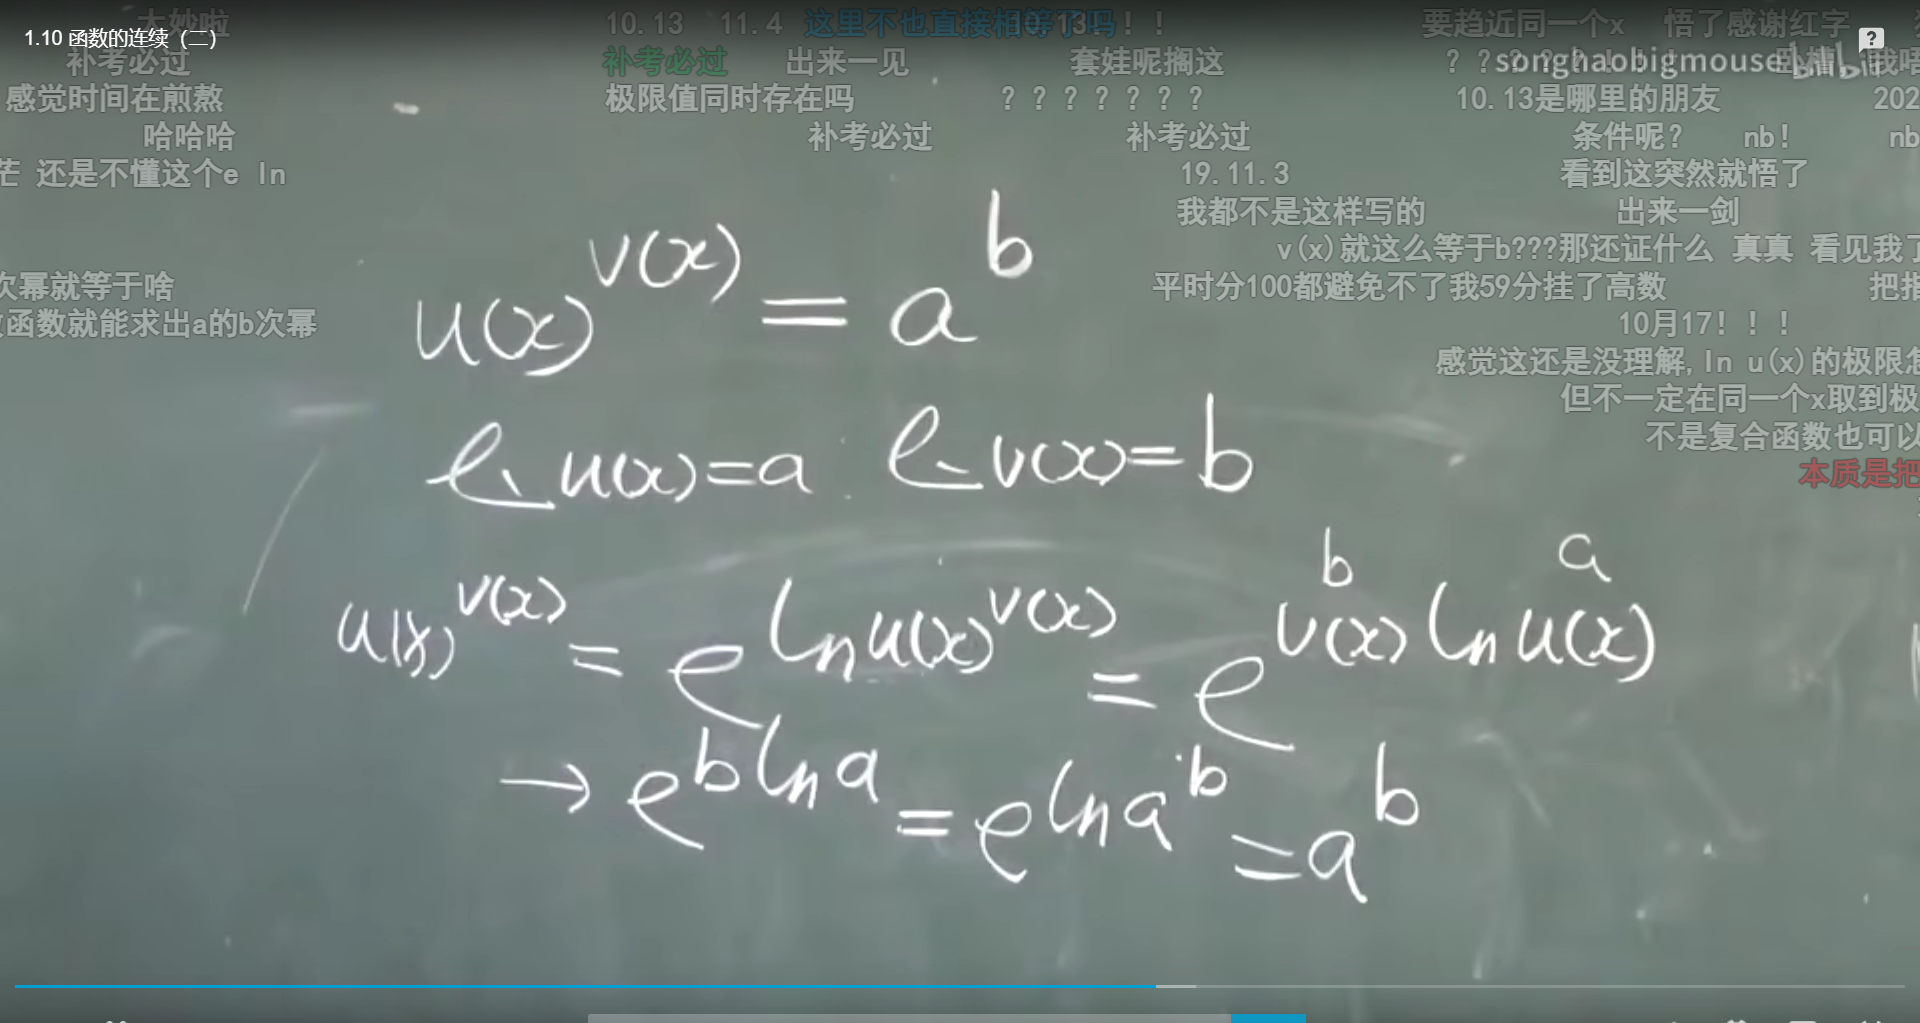 大妙啦 10.13 11.4 这里不也直接相等了吗 10.13！！！ 要趋近同一个x 悟了感谢红字
1.10 函数的连续（二）
补考必过 补考必过 出来一见 套娃呢搁这 songhaobigmouse bilibili
感觉时间在煎熬 极限值同时存在吗 ？？？？？？？ 10.13是哪里的朋友 202
哈哈哈 补考必过 补考必过 条件呢？ nb！ nb
茫 还是不懂这个e ln 19.11.3 看到这突然就悟了
我都不是这样写的 出来一剑
v(x)就这么等于b???那还证什么 真真 看见我了
次幂就等于啥 平时分100都避免不了我59分挂了高数
函数就能求出a的b次幂 10月17！！！
感觉这还是没理解,ln u(x)的极限怎
但不一定在同一个x取到极
不是复合函数也可以
本质是把
u(x)^v(x) = a^b
lim u(x)=a. lim v(x)=b
b a
u(x)^v(x) = e^ln u(x)^v(x) = e^v(x) ln u(x)
→ e^b ln a = e^ln a^b = a^b